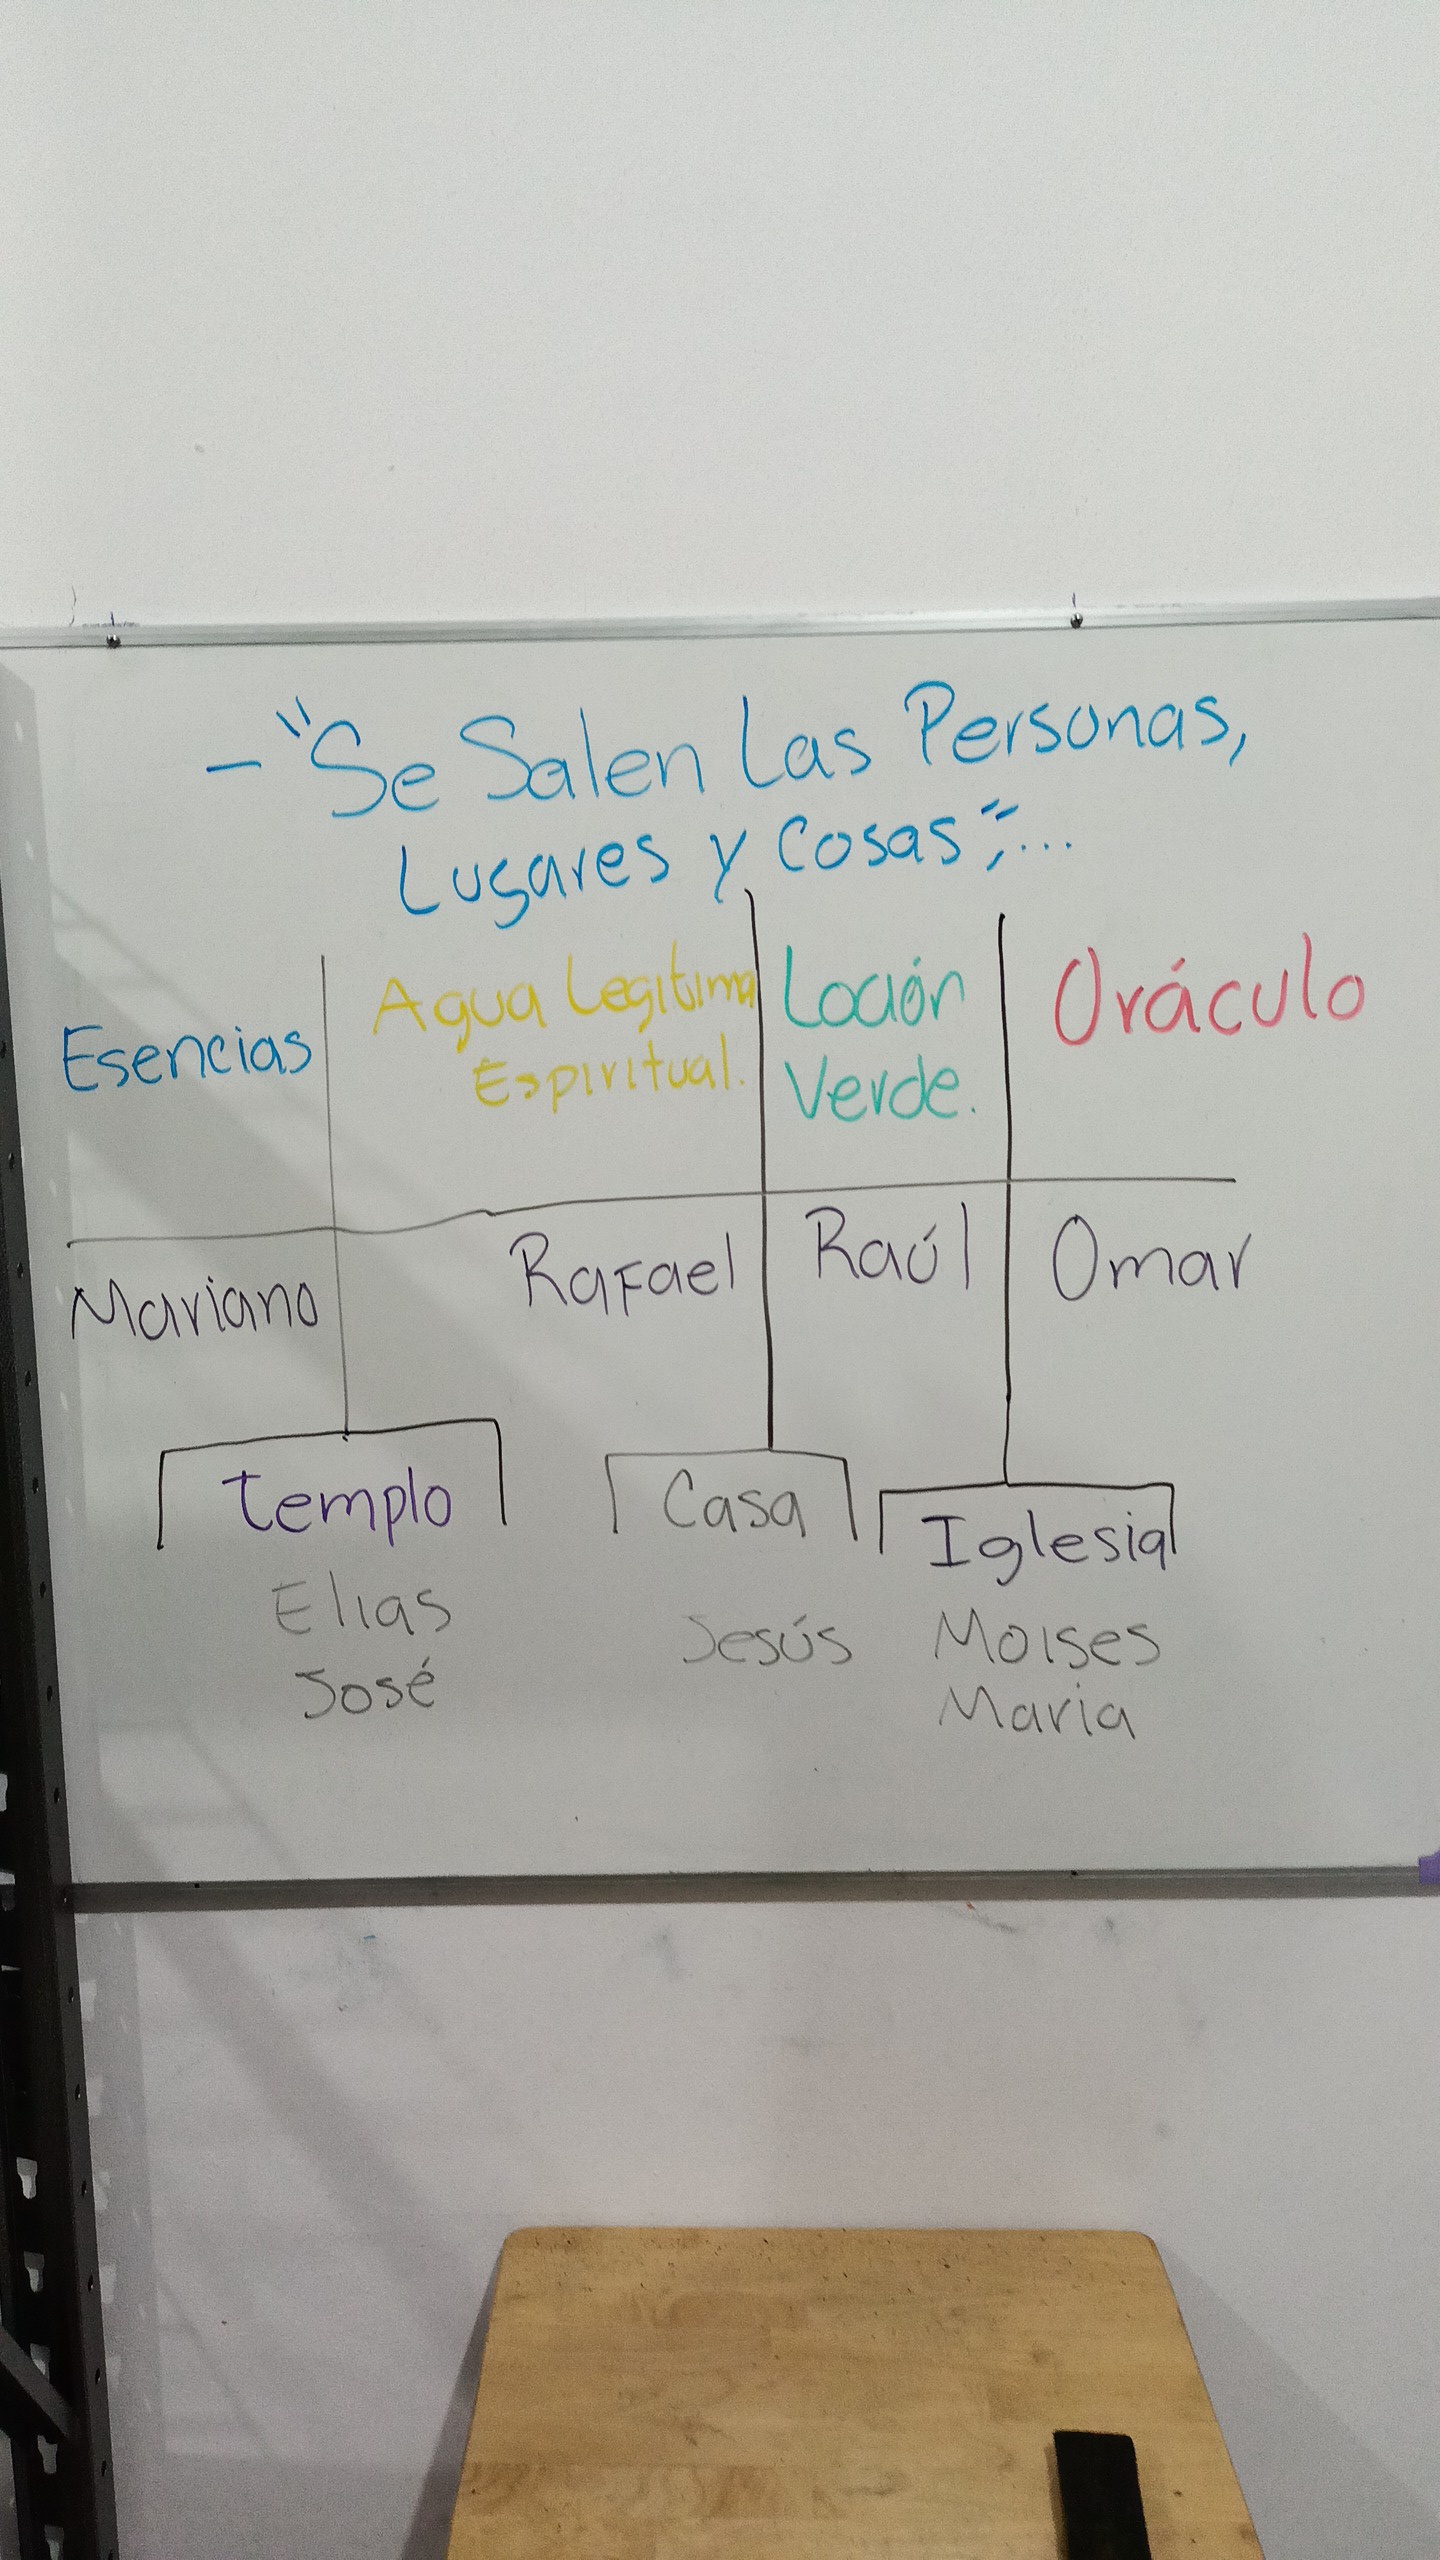 - "Se Salen Las Personas,
Lugares y Cosas";...
Esencias
Agua Legitima
Espiritual.
Loción
Verde.
Oráculo
Mariano
Rafael
Raúl
Omar
Templo
Casa
Iglesia
Elias
José
Jesús
Moises
Maria